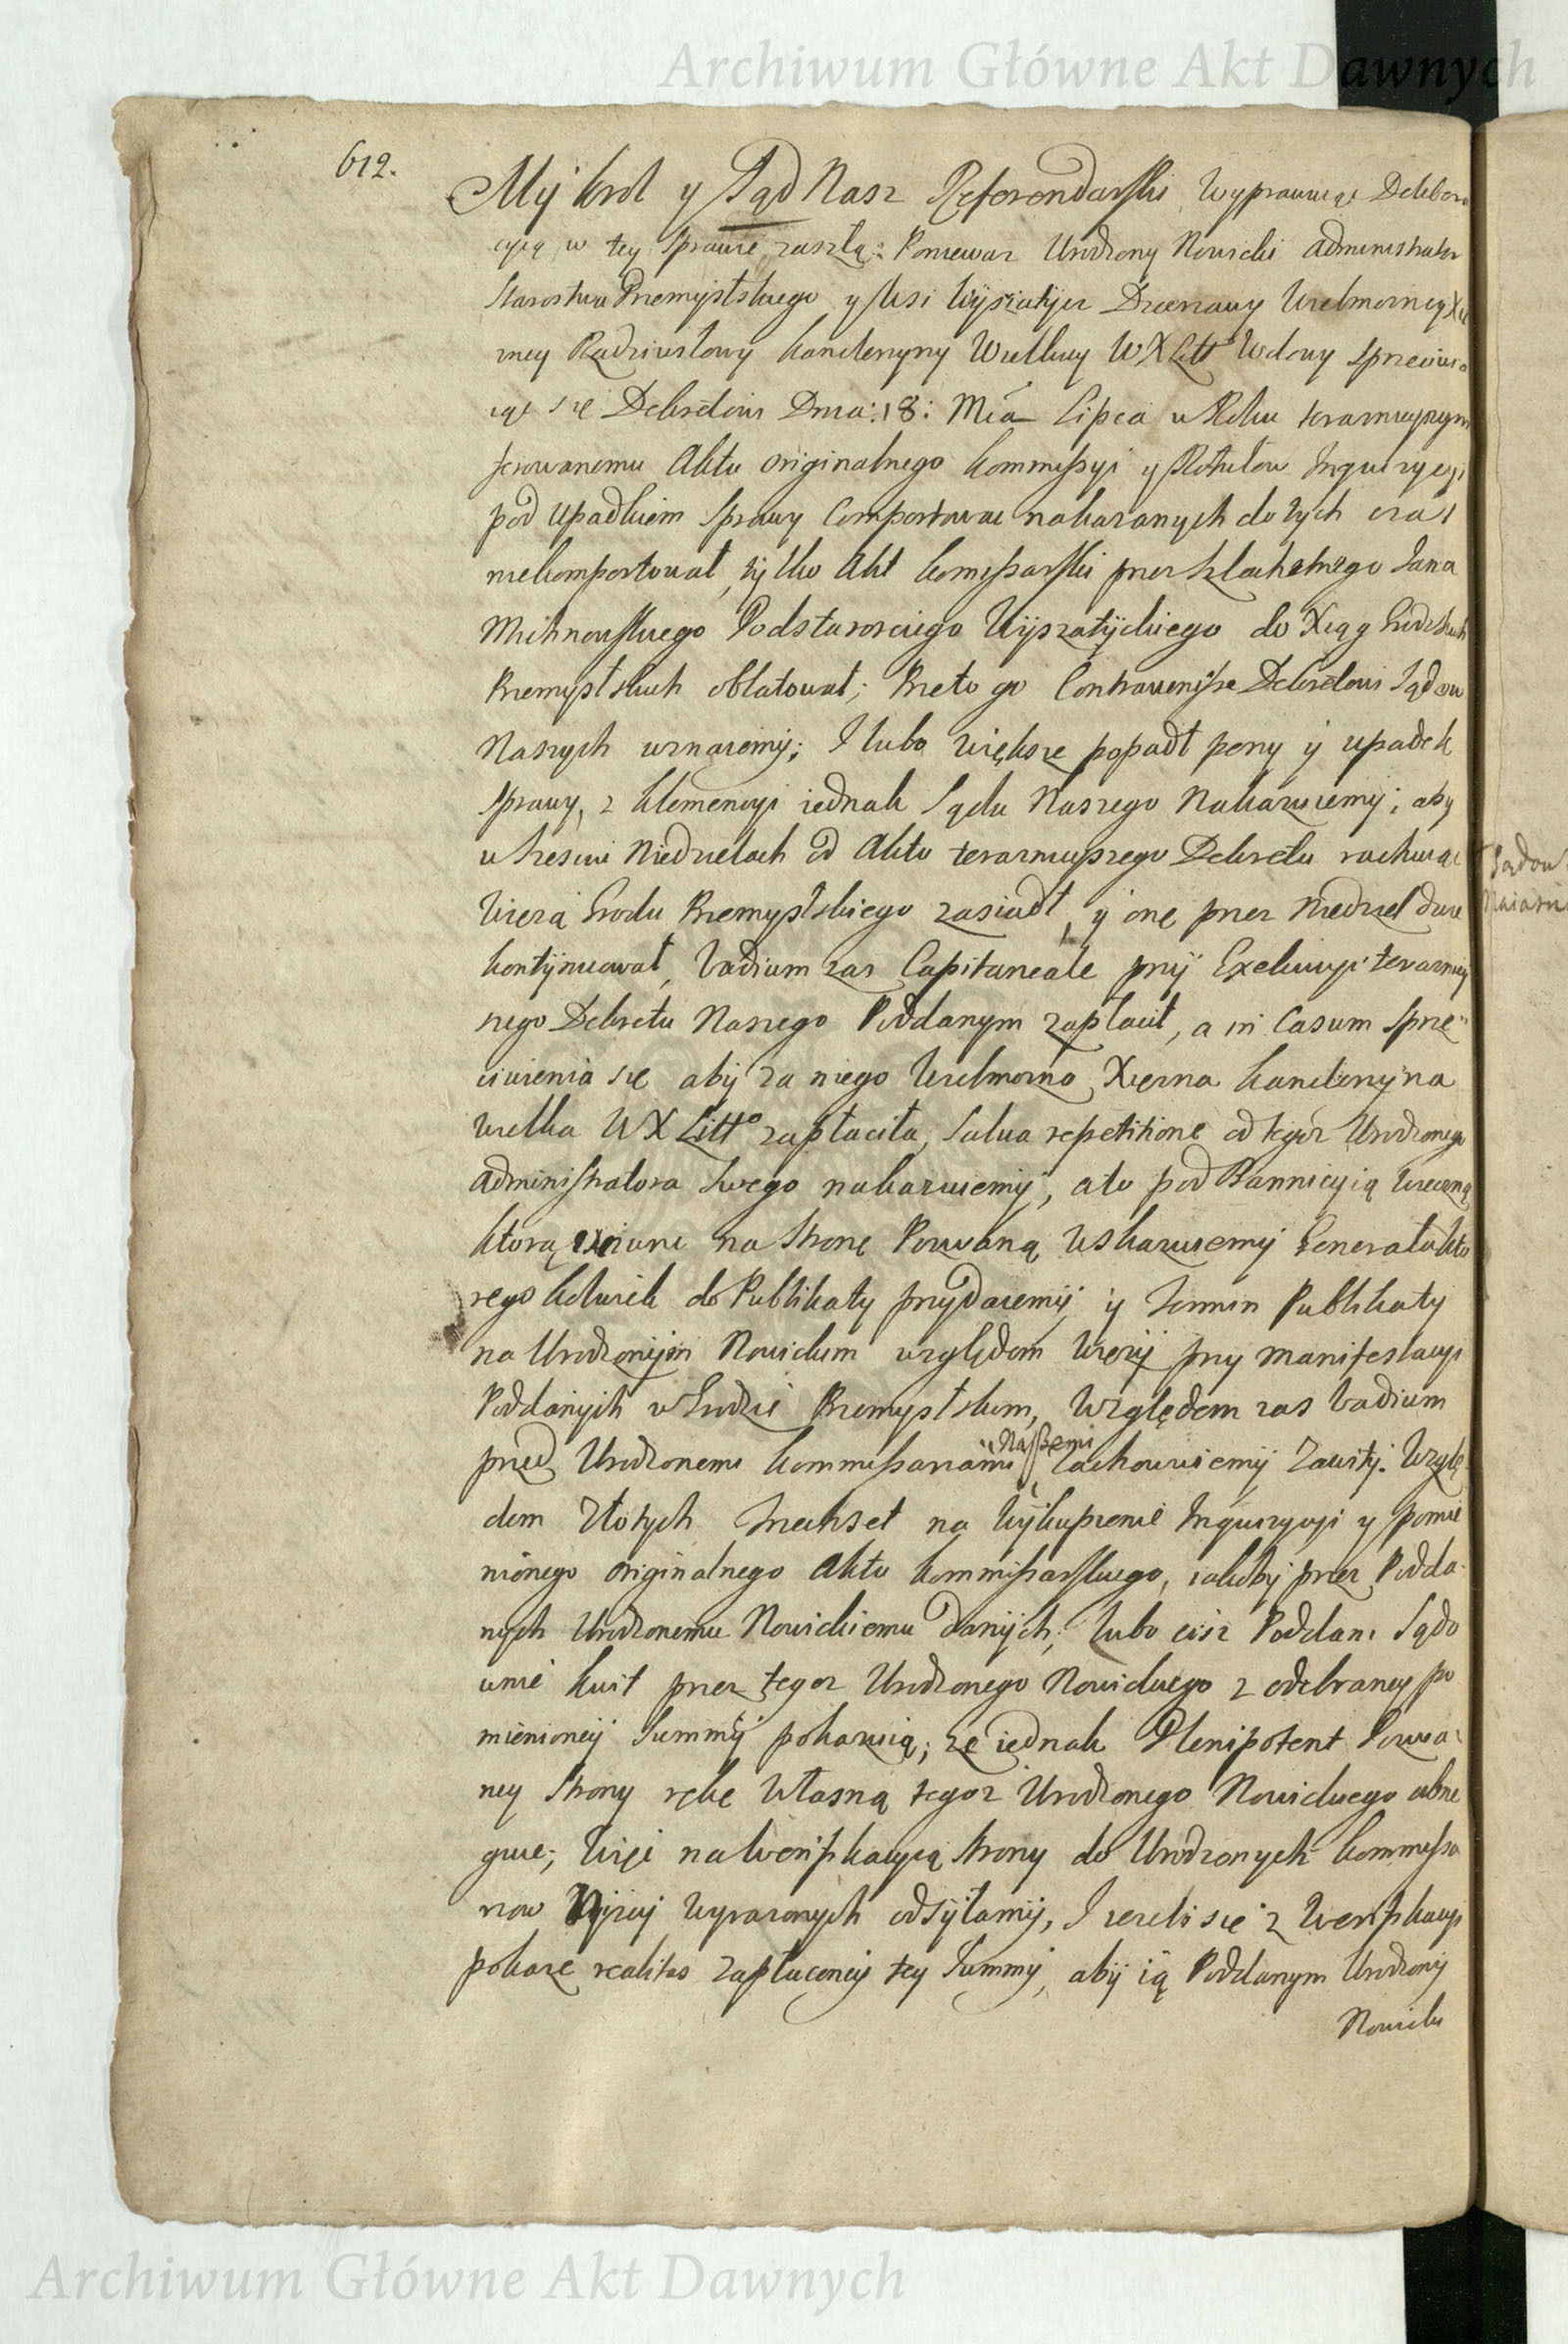 Archiwum Główne Akt Dawnych
612.
My Krol y Sąd Nasz Referendarski, wyprawuiąc Delibera
cyią w tey Sprawie zaszłą: Ponieważ Urodzony Nowicki Administrator
Starostwa Przemyslskiego y Wsi Wyszatyce Dzierzawy Wielmozney Xię
zney Radziwiłowy Kanclerzyny Wielkiey W X Litt° Wdowy sprzeciwia
iąc się Dekretowi Dnia: 18: Mca Lipca w Roku teraznieyszym
ferowanemu Aktu originalnego Kommissyi y Rotułow Inquizycyi
pod upadkiem Sprawy Comportowac nakazanych do tych czas
niekomportował, tylko Akt Komissarski przez Szlachetnego Jana
Michnowskiego Podstarosciego Wyszatyckiego do Xiąg Grodzkich
Przemyslskich oblatował; Przeto go Contravenisse Dekretowi Sądow
Naszych uznaiemy; I lubo większe popadł peny y upadek
Sprawy, z Klemencyi iednak Sądu Naszego Nakazuiemy; aby
w trzech Niedzielach od Aktu teraznieyszego Dekretu rachuiąc
Wieżą Grodu Przemyslskiego zasiadł, y onę przez Niedziel dwie
kontynuował, Vadium zas Capitaneale przy Exekucyi terazniey
szego Dekretu Naszego Poddanym zapłacił, a in Casum Sprze=
ciwienia się aby za niego Wielmożna Xiężna Kanclerzyna
wielka W X Litt° zapłaciła, Salva repetitione od tegoż Urodzonego
Administratora Swego nakazuiemy, a to pod Bannicyią wieczną
ktorą na Stronę Pozwaną Wskazuiemy Generała kto
rego kolwiek do Publikaty przydaiemy y Termin Publikaty
na Urodzonym Nowickim względem Wieży przy manifestacyi
Poddanych w Grodzie Przemyslskim, Względem zas Vadium
przed Urodzonemi Kommissarzami Naszemi Zachowuiemy Zawity. Wzglę
dem Złotych Trzechset na Wykupienie Inquizycyi y pomie
nionego originalnego Aktu Kommissarskiego, iakoby przez Podda
nych Urodzonemu Nowickiemu danych; Lubo ciż Poddani Sądo
wnie kwit przez tegoż Urodzonego Nowickiego z odebraney po
mienioney Summy pokazuią; że iednak Plenipotent Pozwa=
ney Strony rękę własną tegoż Urodzonego Nowickiego abne
guie; Więc na weryfikacyią Strony do Urodzonych Kommissa
rzow Niżey wyrażonych odsyłamy, I jezeli się z weryfikacyi
pokaże realitas zapłaconey tey Summy, aby ią Poddanym Urodzony
Nowicki
Archiwum Główne Akt Dawnych